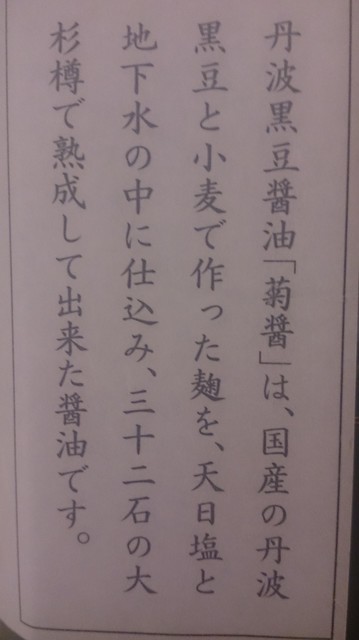 丹波黒豆醤油「菊醤」は、国産の丹波
黒豆と小麦で作った麹を、天日塩と
地下水の中に仕込み、三十二石の大
杉樽で熟成して出来た醤油です。